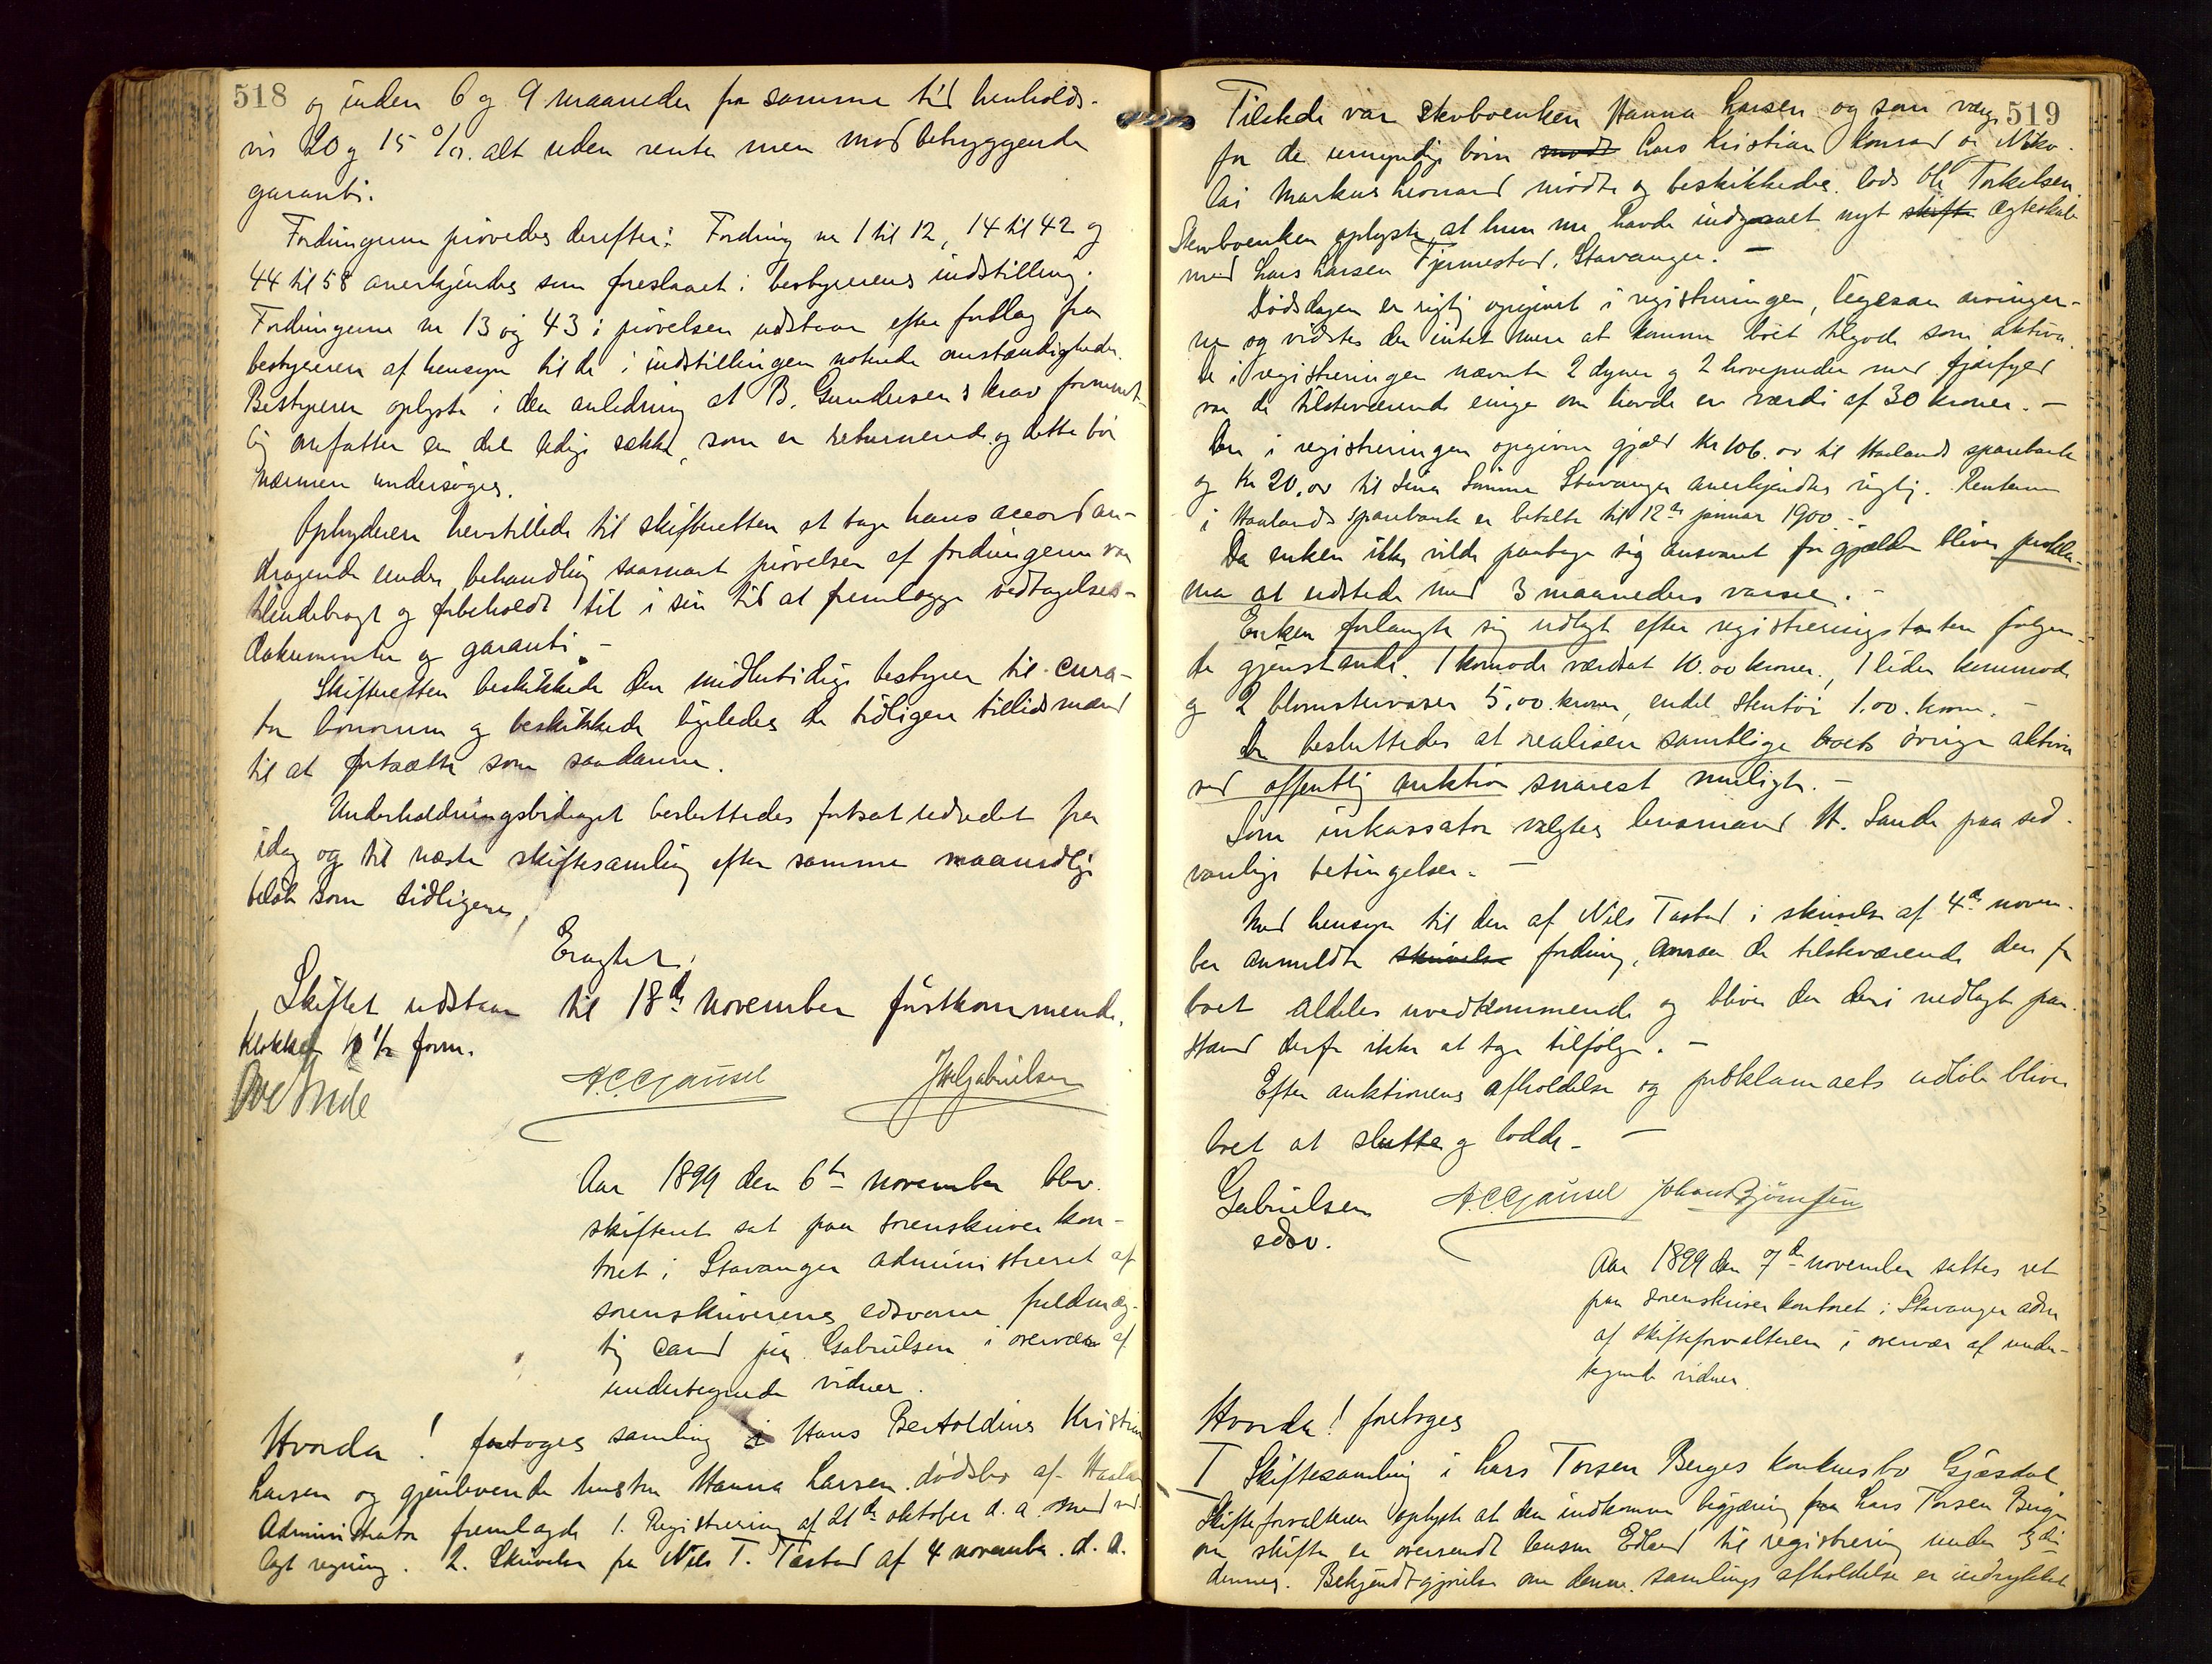 518
og inden 6 og 9 maaneder fra samme tid henholds-
vis 20 og 15 %. alt uden rente men mod betryggende
garanti.
Fordringerne prøvedes derefter: Fordring nr 1 til 12, 14 til 42 og
44 til 58 anerkjendtes som foreslaaet i bestyrerens indstilling.
Fordringerne nr 13 og 43 i prøvelsen udstaar efter forslag fra
bestyreren af hensyn til de i indstillingen nævnte omstændigheder.
Bestyreren oplyste i den anledning at B. Gundersens krav forment-
lig omfatter en del ledige sække, som er returnerede og dette bør
nærmere undersøges.
Opbyderen henstillede til skifteretten at tage hans accordan-
dragende under behandling saasnart prøvelsen af fordringerne var
tilendebragt og forbeholdt til i sin tid at fremlægge vedtagelses-
dokumenter og garanti. -
Skifteretten beskikkede den midlertidige bestyrer til cura-
tor bonorum og beskikkede ligeledes de tidligere tillidsmænd
til at fortsætte som saadanne.
Underholdningsbidraget besluttedes fortsat udredet fra
idag og til næste skiftesamling efter samme maanedlige
beløb som tidligere,
Eragtet:
Skiftet udstaar til 18de november førstkommende,
Klokken 10 1/2 form.
A.C. Gausel
JM Gabrielsen
Aar 1899 den 6te november blev
skifteret sat paa sorenskriverkon-
toret i Stavanger administreret af
sorenskriverens edsvorne fuldmæg-
tig cand jur. Gabrielsen i overvær af
undertegnede vidner.
Hvorda! foretoges samling i Hans Bertoldius Kristian
Larsen og gjenlevende hustru Hanna Larsen dødsbo af Haaland
Administrator fremlagde 1. Registrering af 21de oktober d. a. med ved
lagt regning. 2. Skrivelse fra Nils T. Tastad af 4 november d. a.
519
Tilstede var stervboenken Hanna Larsen og som værge
for de umyndige børn mødte Lars Kristian Konrad og Niko-
lai Markus Leonard mødte og beskikkedes lods Ole Torkelsen.
Stervboenken oplyste at hun nu havde indgaaet nyt skifte ægteskab
med Lars Larsen Tjemestad, Stavanger. -
Dødsdagen er rigtig opgivet i registreringen, ligesaa arvinger-
ne og vidstes der intet mere at komme boet tilgode som aktiva.
De i registreringen nævnte 2 dyner og 2 hovedpuder med fjærfyld
var de tilstedeværende enige om havde en værdi af 30 kroner. -
Den i registreringen opgivne gjæld kr 106.00 til Haalands sparebank
og kr 20.00 til Lina Sømme Stavanger anerkjendtes rigtig. Renterne
i Haalands sparebank er betalte til 12te januar 1900. -
Da enken ikke vilde paatage sig ansvaret for gjælden bliver prokla-
ma at udstede med 3 maaneders varsel. -
Enken forlangte sig udlagt efter registreringstaksten følgen-
de gjenstande. 1 komode værdsat 10.00 kroner, 1 liden kommode
og 2 blomstervaser 5.00 kroner, endel stentøi 1.00 krone. -
Der besluttedes at realisere samtlige boets øvrige aktiva
ved offentlig auktion snarest muligt. -
Som inkassator valgtes lensmand H. Sande paa sed-
vanlige betingelser. -
Med hensyn til den af Nils Tastad i skrivelse af 4de novem-
ber anmeldte skrivelse fordring, ansaa de tilstedeværende den for
boet aldeles uvedkommende og bliver den deri nedlagte paa-
stand derfor ikke at tage tilfølge. -
Efter auktionens afholdelse og proklamaets udløb bliver
boet at slutte og lodde. -
Gabrielsen
edsv.
A.C. Gausel Johan Bjørnsen
Aar 1899 den 7de november sattes ret
paa sorenskriverkontoret i Stavanger adm
af skifteforvalteren i overvær af under-
tegnede vidner.
Hvorda! foretoges
Skiftesamling i Lars Torsen Berges konkursbo Gjæsdal
Skifteforvalteren oplyste at den indkomne begjæring fra Lars Torsen Berge
om skifte er oversendt lensm Edland til registrering under 3die
dennes. Bekjendtgjørelse om denne samlings afholdelse er indrykket